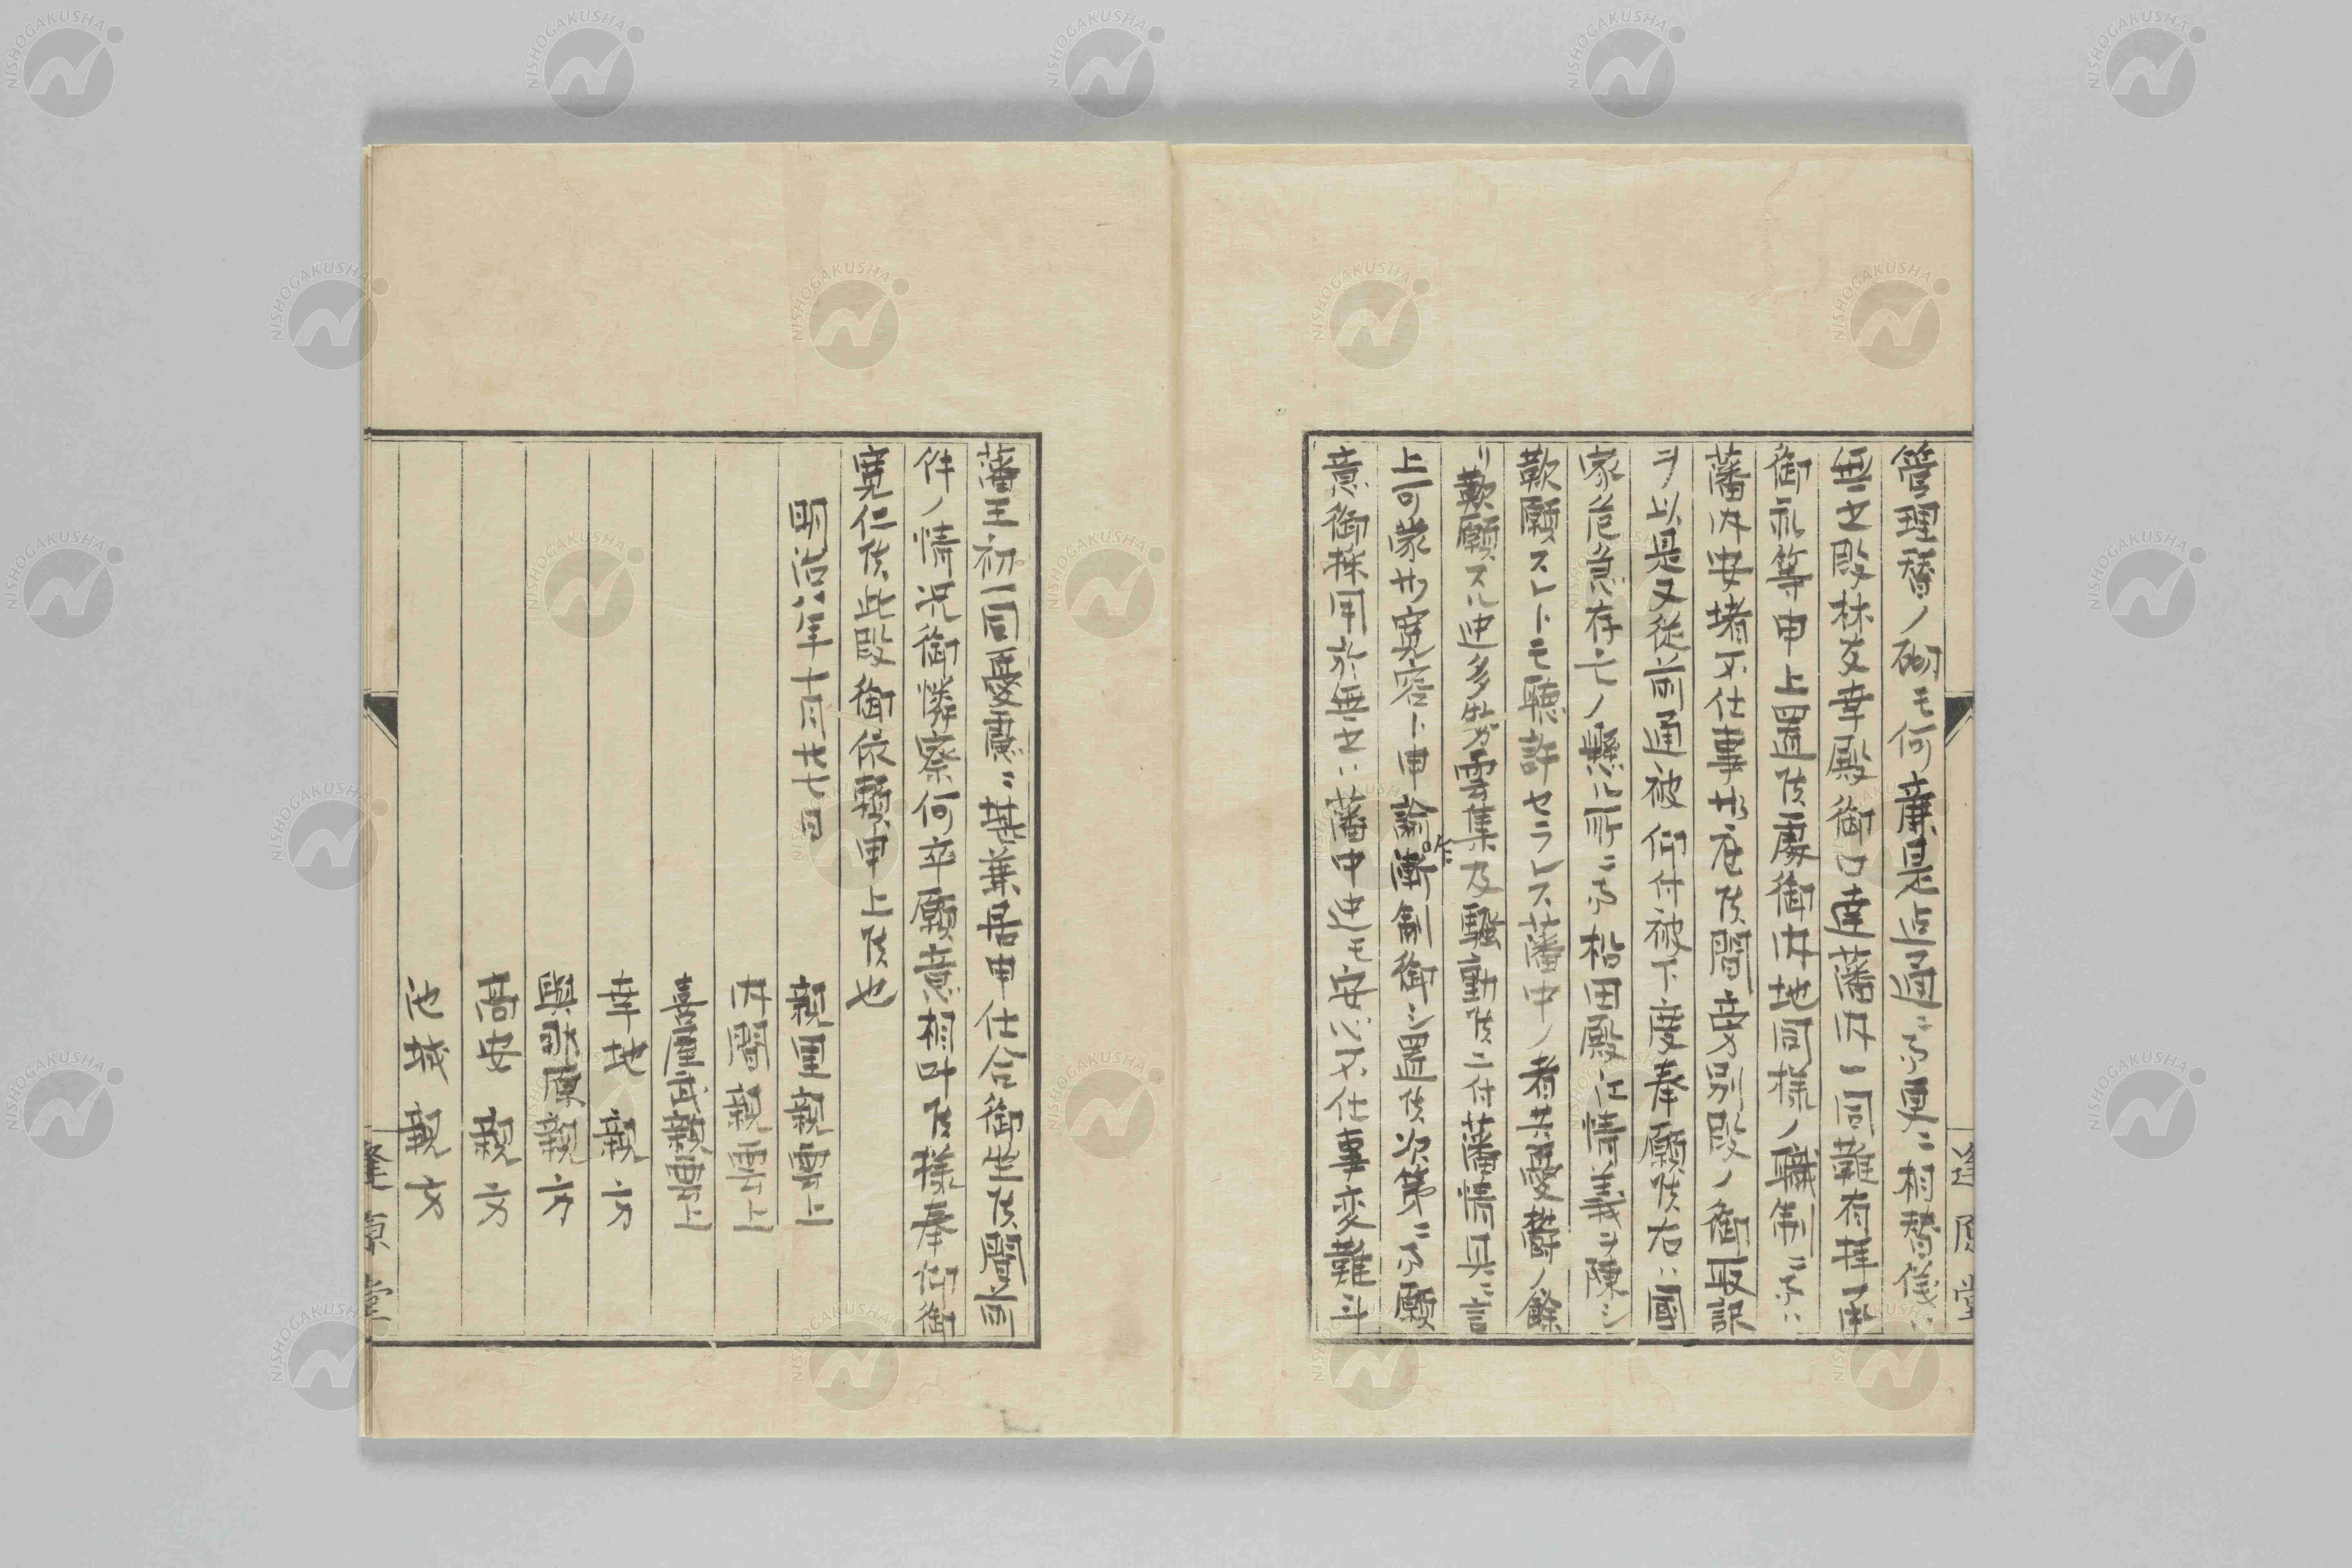 管理替ノ砌モ何廉是迄通ニ而更ニ相替儀ハ
無之段林友幸殿御口達藩内一同難有拝承
御礼等申上置候處御内地同様ノ職制ニ而ハ
藩内安堵不仕事出在候間旁別段ノ御取訳
ヲ以是又従前通被仰付被下度奉願候右ハ國
家危急存亡ノ懸ル所ニ而松田殿江情義ヲ陳シ
歎願スレトモ聽許セラレス藩中ノ者共憂欝ノ餘
リ歎願スル迚多勢雲集及騒動候ニ付藩情具ニ言
上可蒙廿寛容ト申諭昨
制御シ置候次第ニ而願
意御採用於無之ハ藩中迚モ安心不仕事変難斗
藩王初一同憂慮ニ甚兼居申仕合御坐候間前
件ノ情況御憐察何卒願意相叶候様奉仰御
寛仁候此段御依頼申上候也
明治八年十一月廿七日
親里親雲上
内間親雲上
喜屋武親雲上
幸地親方
與那原親方
高安親方
池城親方
逢原堂